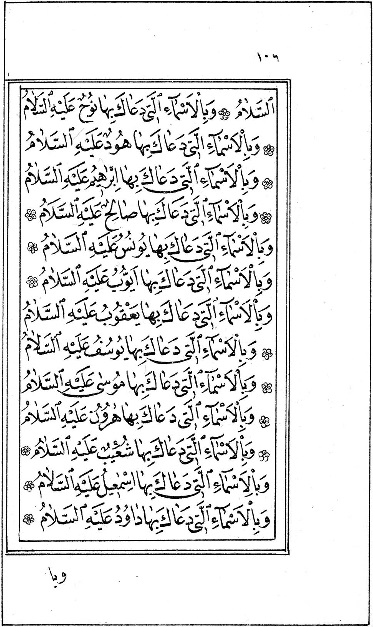 ١٠٦
السَّلَامُ ۞ وَبِالْأَسْمَاءِ الَّتِي دَعَاكَ بِهَا نُوحٌ عَلَيْهِ السَّلَامُ
۞ وَبِالْأَسْمَاءِ الَّتِي دَعَاكَ بِهَا هُودٌ عَلَيْهِ السَّلَامُ
۞ وَبِالْأَسْمَاءِ الَّتِي دَعَاكَ بِهَا إِبْرٰهِيمُ عَلَيْهِ السَّلَامُ
۞ وَبِالْأَسْمَاءِ الَّتِي دَعَاكَ بِهَا صَالِحٌ عَلَيْهِ السَّلَامُ ۞
وَبِالْأَسْمَاءِ الَّتِي دَعَاكَ بِهَا يُونُسُ عَلَيْهِ السَّلَامُ ۞
وَبِالْأَسْمَاءِ الَّتِي دَعَاكَ بِهَا أَيُّوبُ عَلَيْهِ السَّلَامُ ۞
وَبِالْأَسْمَاءِ الَّتِي دَعَاكَ بِهَا يَعْقُوبُ عَلَيْهِ السَّلَامُ
۞ وَبِالْأَسْمَاءِ الَّتِي دَعَاكَ بِهَا يُوسُفُ عَلَيْهِ السَّلَامُ
۞ وَبِالْأَسْمَاءِ الَّتِي دَعَاكَ بِهَا مُوسَى عَلَيْهِ السَّلَامُ
۞ وَبِالْأَسْمَاءِ الَّتِي دَعَاكَ بِهَا هٰرُونُ عَلَيْهِ السَّلَامُ
۞ وَبِالْأَسْمَاءِ الَّتِي دَعَاكَ بِهَا شُعَيْبٌ عَلَيْهِ السَّلَامُ ۞
وَبِالْأَسْمَاءِ الَّتِي دَعَاكَ بِهَا إِسْمٰعِيلُ عَلَيْهِ السَّلَامُ ۞
وَبِالْأَسْمَاءِ الَّتِي دَعَاكَ بِهَا دَاوُدُ عَلَيْهِ السَّلَامُ ۞
وبا